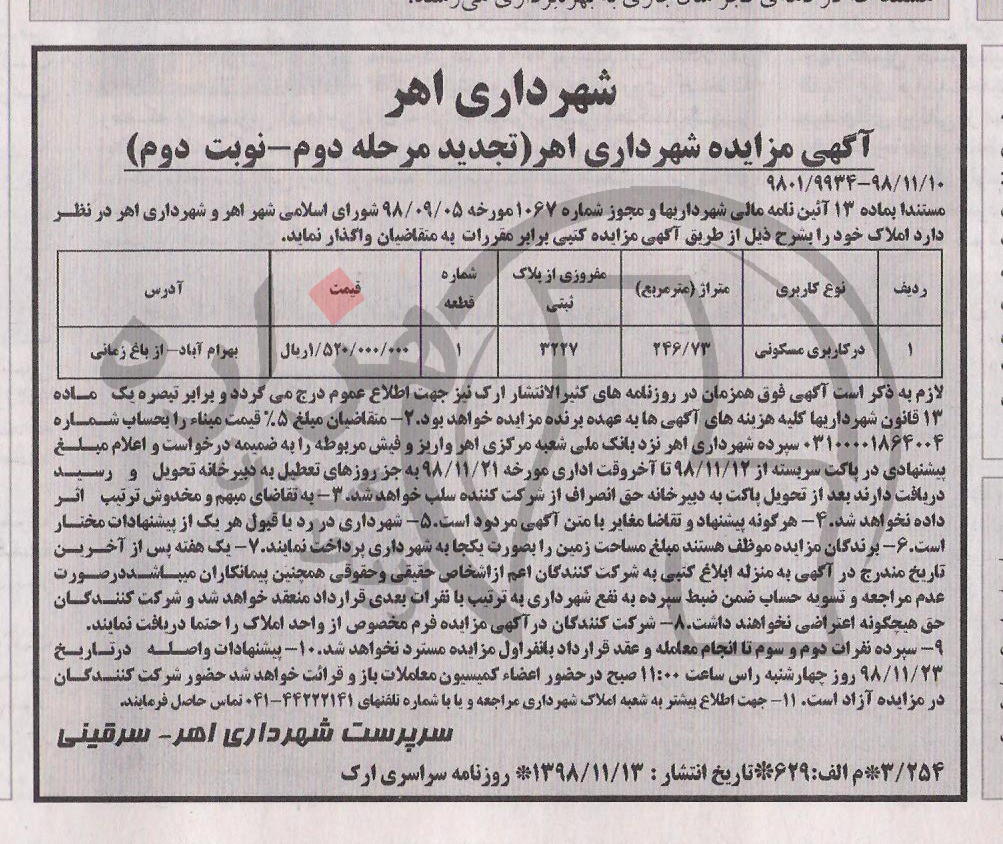 شهرداری اهر
آگهی مزایده شهرداری اهر(تجدید مرحله دوم-نوبت دوم)
۹۸۰۱/۹۹۳۴-۹۸/۱۱/۱۰
مستندا بماده ۱۳ آئین نامه مالی شهرداریها و مجوز شماره ۱۰۶۷ مورخه ۹۸/۰۹/۰۵ شورای اسلامی شهر اهر و شهرداری اهر در نظر
دارد املاک خود را بشرح ذیل از طریق آگهی مزایده کتبی برابر مقررات به متقاضیان واگذار نماید.
ردیف نوع کاربری متراژ (مترمربع) مفروزی از پلاک ثبتی شماره قطعه قیمت آدرس
۱ در کاربری مسکونی ۲۴۶/۷۳ ۳۲۲۷ ۱ ۱/۵۲۰/۰۰۰/۰۰۰ریال بهرام آباد- از باغ زمانی
لازم به ذکر است آگهی فوق همزمان در روزنامه های کثیرالانتشار ارک نیز جهت اطلاع عموم درج می گردد و برابر تبصره یک ماده
۱۳ قانون شهرداریها کلیه هزینه های آگهی ها به عهده برنده مزایده خواهد بود.۲- متقاضیان مبلغ ۵٪ قیمت میناء را بحساب شماره
۰۳۱۰۰۰۰۱۸۶۴۰۰۴ سپرده شهرداری اهر نزد بانک ملی شعبه مرکزی اهر واریز و فیش مربوطه را به ضمیمه درخواست و اعلام مبلغ
پیشنهادی در پاکت سربسته از ۹۸/۱۱/۱۲ تا آخر وقت اداری مورخه ۹۸/۱۱/۲۱ به جز روزهای تعطیل به دبیرخانه تحویل و رسید
دریافت دارند بعد از تحویل پاکت به دبیرخانه حق انصراف از شرکت کننده سلب خواهد شد. ۳- به تقاضای مبهم و مخدوش ترتیب اثر
داده نخواهد شد. ۴- هرگونه پیشنهاد و تقاضا مغایر با متن آگهی مردود است. ۵- شهرداری در رد یا قبول هر یک از پیشنهادات مختار
است. ۶- برندگان مزایده موظف هستند مبلغ مساحت زمین را بصورت یکجا به شهرداری پرداخت نمایند. ۷- یک هفته پس از آخرین
تاریخ مندرج در آگهی به منزله ابلاغ کتبی به شرکت کنندگان اعم ازاشخاص حقیقی وحقوقی همچنین پیمانکاران میباشددرصورت
عدم مراجعه و تسویه حساب ضمن ضبط سپرده به نفع شهرداری به ترتیب با نفرات بعدی قرارداد منعقد خواهد شد و شرکت کنندگان
حق هیچگونه اعتراضی نخواهند داشت. ۸- شرکت کنندگان درآگهی مزایده فرم مخصوص از واحد املاک را حتما دریافت نمایند.
۹- سپرده نفرات دوم و سوم تا انجام معامله و عقد قرارداد بانفراول مزایده مسترد نخواهد شد. ۱۰- پیشنهادات واصله درتاریخ
۹۸/۱۱/۲۳ روز چهارشنبه راس ساعت ۱۱:۰۰ صبح درحضور اعضاء کمیسیون معاملات باز و قرائت خواهد شد حضور شرکت کنندگان
در مزایده آزاد است. ۱۱- جهت اطلاع بیشتر به شعبه املاک شهرداری مراجعه و یا با شماره تلفنهای ۰۴۱-۴۴۲۲۲۱۴۱ تماس حاصل فرمایند.
سرپرست شهرداری اهر- سرقینی
۳/۲۵۴*م الف:۶۲۹*تاریخ انتشار : ۱۳۹۸/۱۱/۱۳* روزنامه سراسری ارک
هزاره